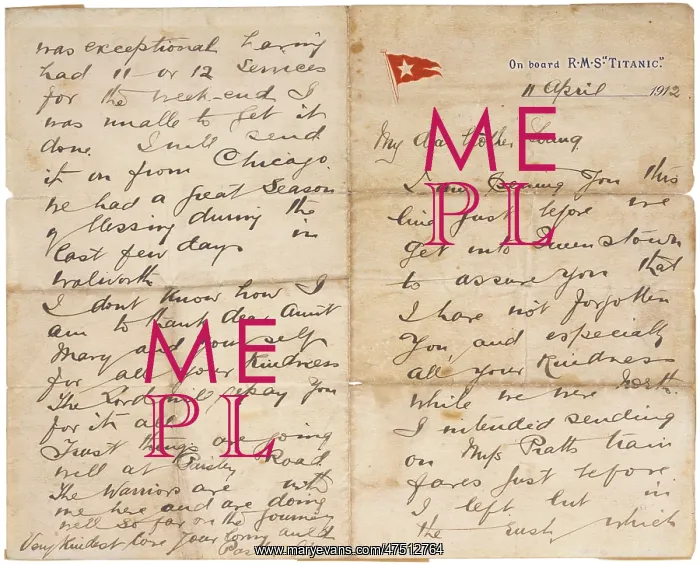 On board R.M.S. "TITANIC."
11 April 1912.
My dear Brother Young
I am Penning you this
line just before we
get into Queenstown
to assure you that
I have not forgotten
you and especially
all your Kindness
while we were North.
I intended sending
on Mrs Pratts train
fares just before
I left but in
the rush which
was exceptional having
had 11 or 12 Services
for the week-end I
was unable to get it
done. I will send
it on from Chicago.
We had a great Season
of blessing during the
last few days in
Walworth
I dont know how I
am to thank dear Aunt
Mary and yourself
for all your Kindness
The Lord will repay you
for it all
Trust things are going
well at Paisley Road.
The Warriors are with
me here and are doing
well so far on the Journey
Very Kindest love your loving auld
Pastor
ME
PL
ME
PL
www.maryevans.com/47512764